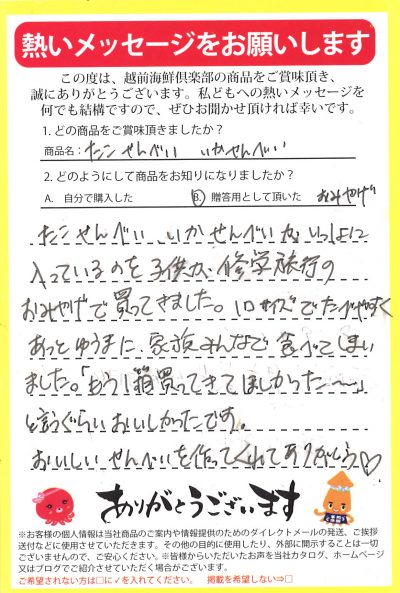 熱いメッセージをお願いします
この度は、越前海鮮倶楽部の商品をご賞味頂き、
誠にありがとうございます。私どもへの熱いメッセージを
何でも結構ですので、ぜひお聞かせ頂ければ幸いです。
1. どの商品をご賞味頂きましたか？
商品名：たこせんべい いかせんべい
2. どのようにして商品をお知りになりましたか？
A. 自分で購入した B. 贈答用として頂いた おみやげ
たこせんべい、いかせんべいがいっしょに
入っているのを子供が修学旅行の
おみやげで買ってきました。一口サイズでたべやすく
あっとゆうまに、家族みんなで食べてしまい
ました。「もう1箱買ってきてほしかった〜」
と言うぐらいおいしかったです。
おいしいせんべいを作ってくれてありがとう♡
ありがとうございます
※お客様の個人情報は当社商品のご案内や情報提供のためのダイレクトメールの発送、ご挨拶
送付などに使用させていただきます。その他の目的に使用したり、外部に開示することは一切
ございませんので、ご安心ください。※皆様からいただいたお声を当社カタログ、ホームページ
又はブログでご紹介させていただく場合がございます。
ご希望されない方は□に✓を入れてください。 掲載を希望しない⇒□